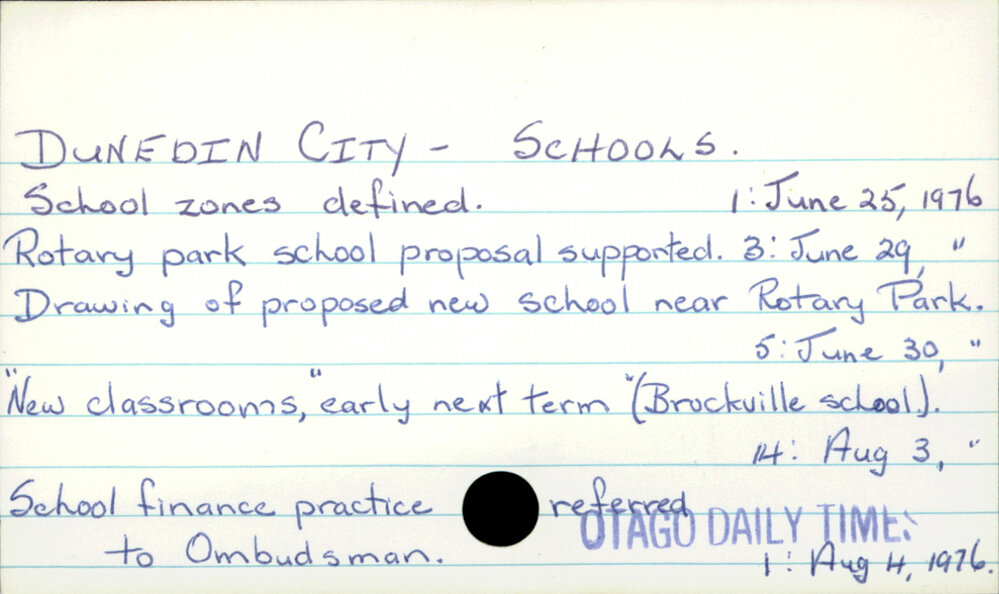 DUNEDIN CITY - SCHOOLS.
School zones defined. 1: June 25, 1976
Rotary park school proposal supported. 3: June 29, "
Drawing of proposed new school near Rotary Park.
5: June 30, "
"New classrooms," "early next term" (Brockville school).
14: Aug 3, "
School finance practice referred
OTAGO DAILY TIMES
to Ombudsman. 1: Aug 4, 1976.